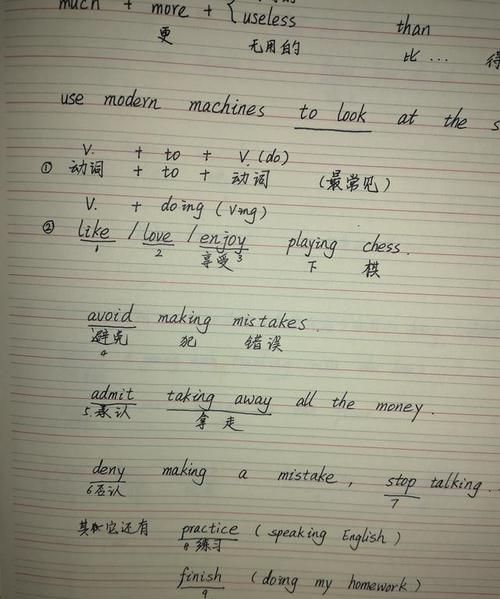 much + more + { useless than
更 无用的 比...
use modern machines to look at the
V. + to + V.(do)
① 动词 + to + 动词 (最常见)
V. + doing (Ving)
② like / love / enjoy playing chess.
1 2 享受 3 下 棋
avoid making mistakes.
避免 犯 错误
4
admit taking away all the money.
5.承认 拿走
deny making a mistake, stop talking.
6否认 7
其它还有 practice (speaking English)
8 练习
finish (doing my homework)
9